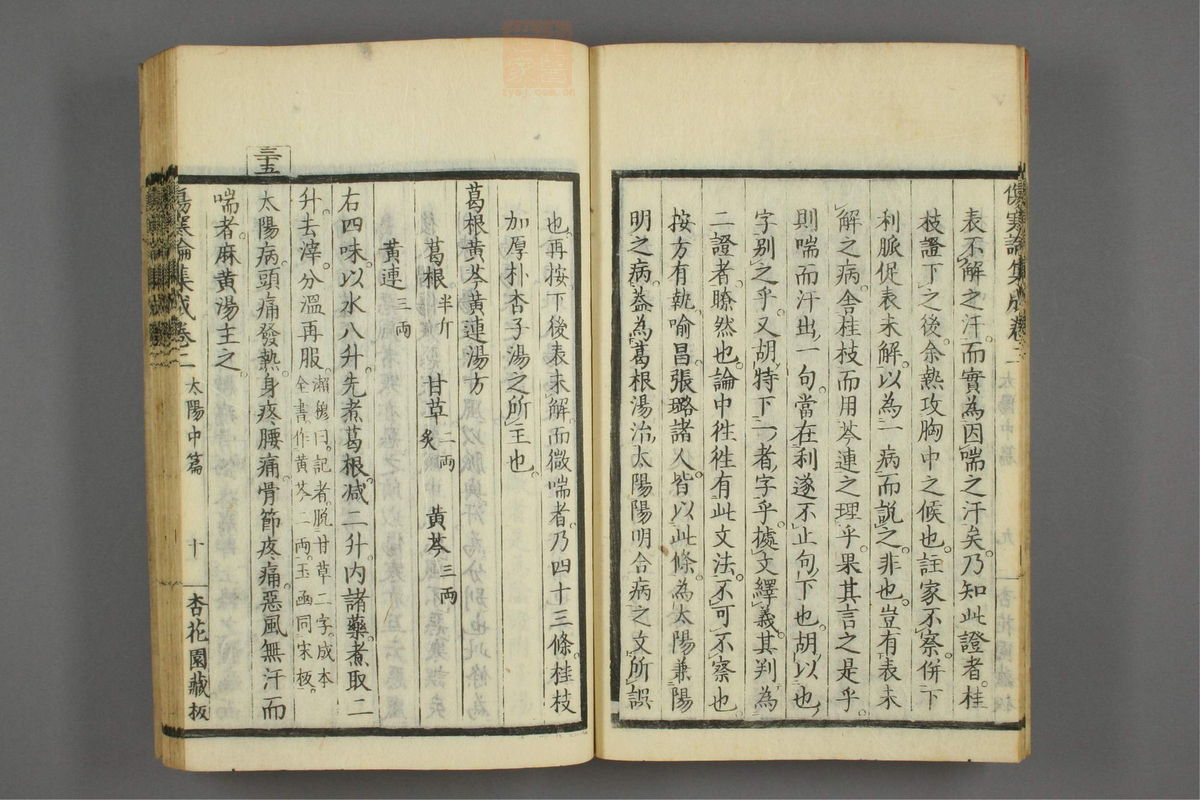 傷寒論集成卷二
表不解之汗。而實為因喘之汗矣。乃知此證者。桂
枝證下之後。余熱攻胸中之候也。註家不察。併下
利脈促表未解。以為一病而說之。非也。豈有表未
解之病。舍桂枝而用芩連之理乎。果其言之是乎。
則喘而汗出。一句。當在利遂不止句下也。胡以也
字別之乎。又胡特下一者字乎。據文繹義。其判為
二證者。瞭然也。論中往往有此文法。不可不察也。
按方有執喻昌張璐諸人。皆以此條。為太陽兼陽
明之病。蓋為葛根湯治太陽陽明合病之文所誤
也。再按下後表未解而微喘者。乃四十三條。桂枝
加厚朴杏子湯之所主也。
葛根黃芩黃連湯方
葛根半斤 甘草二兩炙 黃芩三兩
黃連三兩
右四味。以水八升。先煮葛根。减二升。内諸藥。煮取二
升。去滓。分溫再服。
瀨穆曰。記者。脫甘草二字。成本
全書作黃芩二兩。玉函同宋板。
三五
太陽病。頭痛發熱。身疼腰痛。骨節疼痛。惡風無汗而
喘者。麻黃湯主之。
傷寒論集成卷二 太陽中篇 十 杏花園藏板